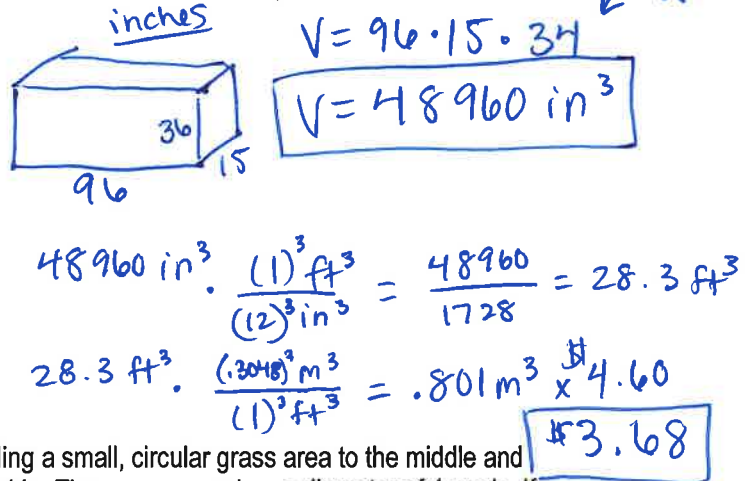 inches
V = 96 · 15 · 34
V = 48960 in³
36
15
96
48960 in³ · (1)³ ft³ / (12)³ in³ = 48960 / 1728 = 28.3 ft³
28.3 ft³ · (.3048)³ m³ / (1)³ ft³ = .801 m³ x $4.60
$3.68
ing a small, circular grass area to the middle and